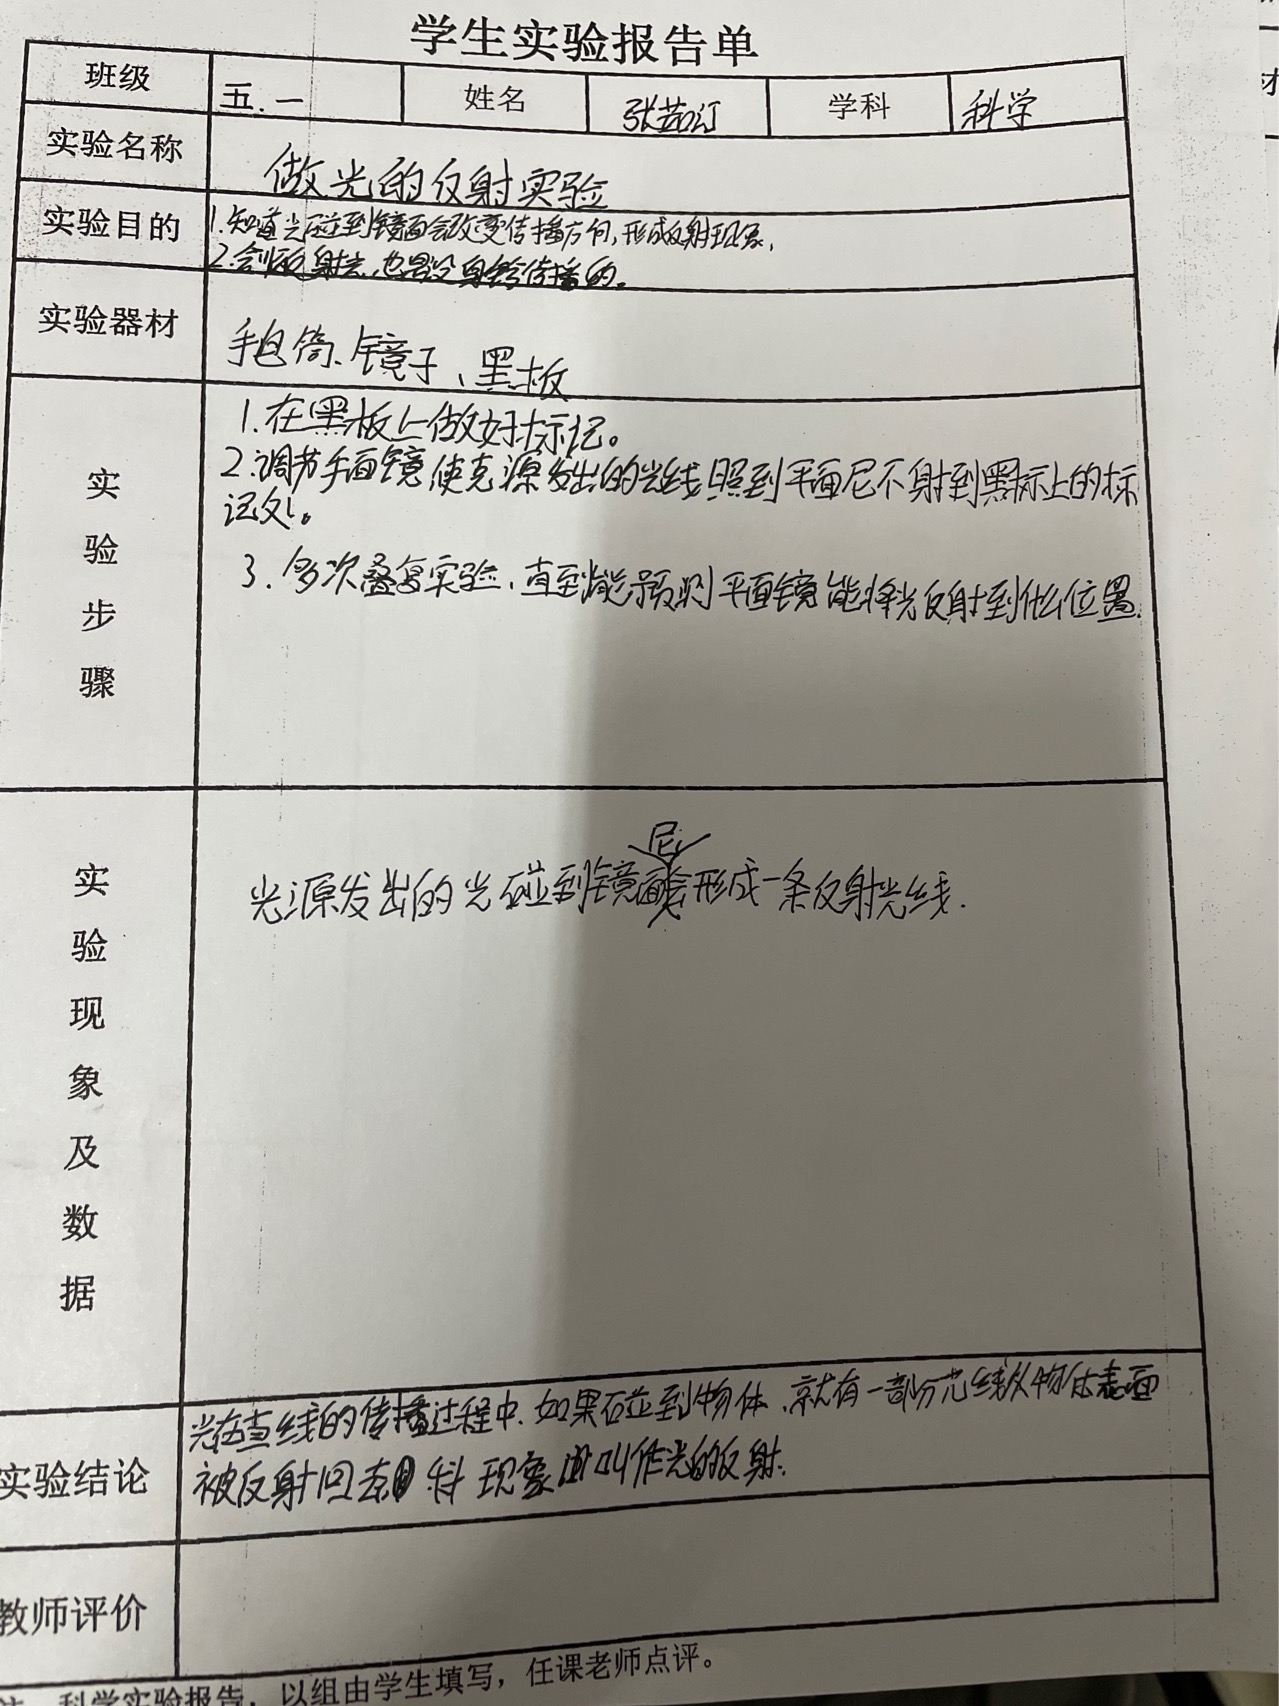 学生实验报告单
班级 五.一 姓名 张茹 学科 科学
实验名称 做光的反射实验
实验目的 1.知道光碰到镜面会改变传播方向,形成反射现象,
2. 反射光,也是沿直线传播的。
实验器材 手电筒、镜子、黑板
实验步骤
1.在黑板上做好标记。
2.调节平面镜使光源发出的光线照到平面 射到黑板上的标
记处。
3.多次重复实验,直至能预测平面镜能将光反射到什么位置.
实验现象及数据
后
光源发出的光碰到镜面会形成一条反射光线.
实验结论 光在直线的传播过程中.如果碰到物体,就有一部分光线从物体表面
被反射回去 现象 叫作光的反射.
教师评价
科学实验报告,以组由学生填写,任课老师点评。